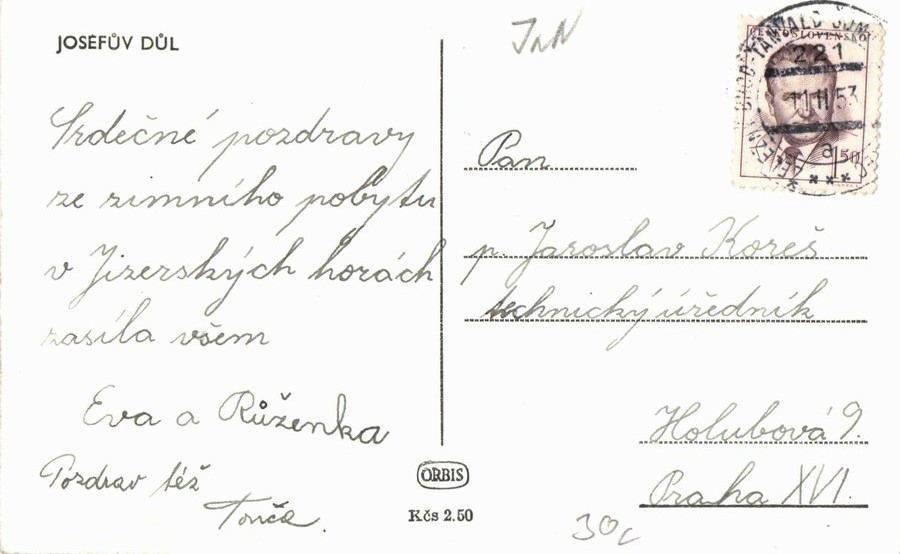 JOSEFŮV DŮL
Srdečné pozdravy
ze zimního pobytu
v Jizerských horách
zasíla všem
Eva a Růženka
Pozdrav též
Tonča.
ORBIS
Kčs 2.50
ČESKOSLOVENSKO
221
11 II 53
a
1,50
Pan
p. Jaroslav Koreš
technický úředník
Holubová 9.
Praha XVI.
30,-